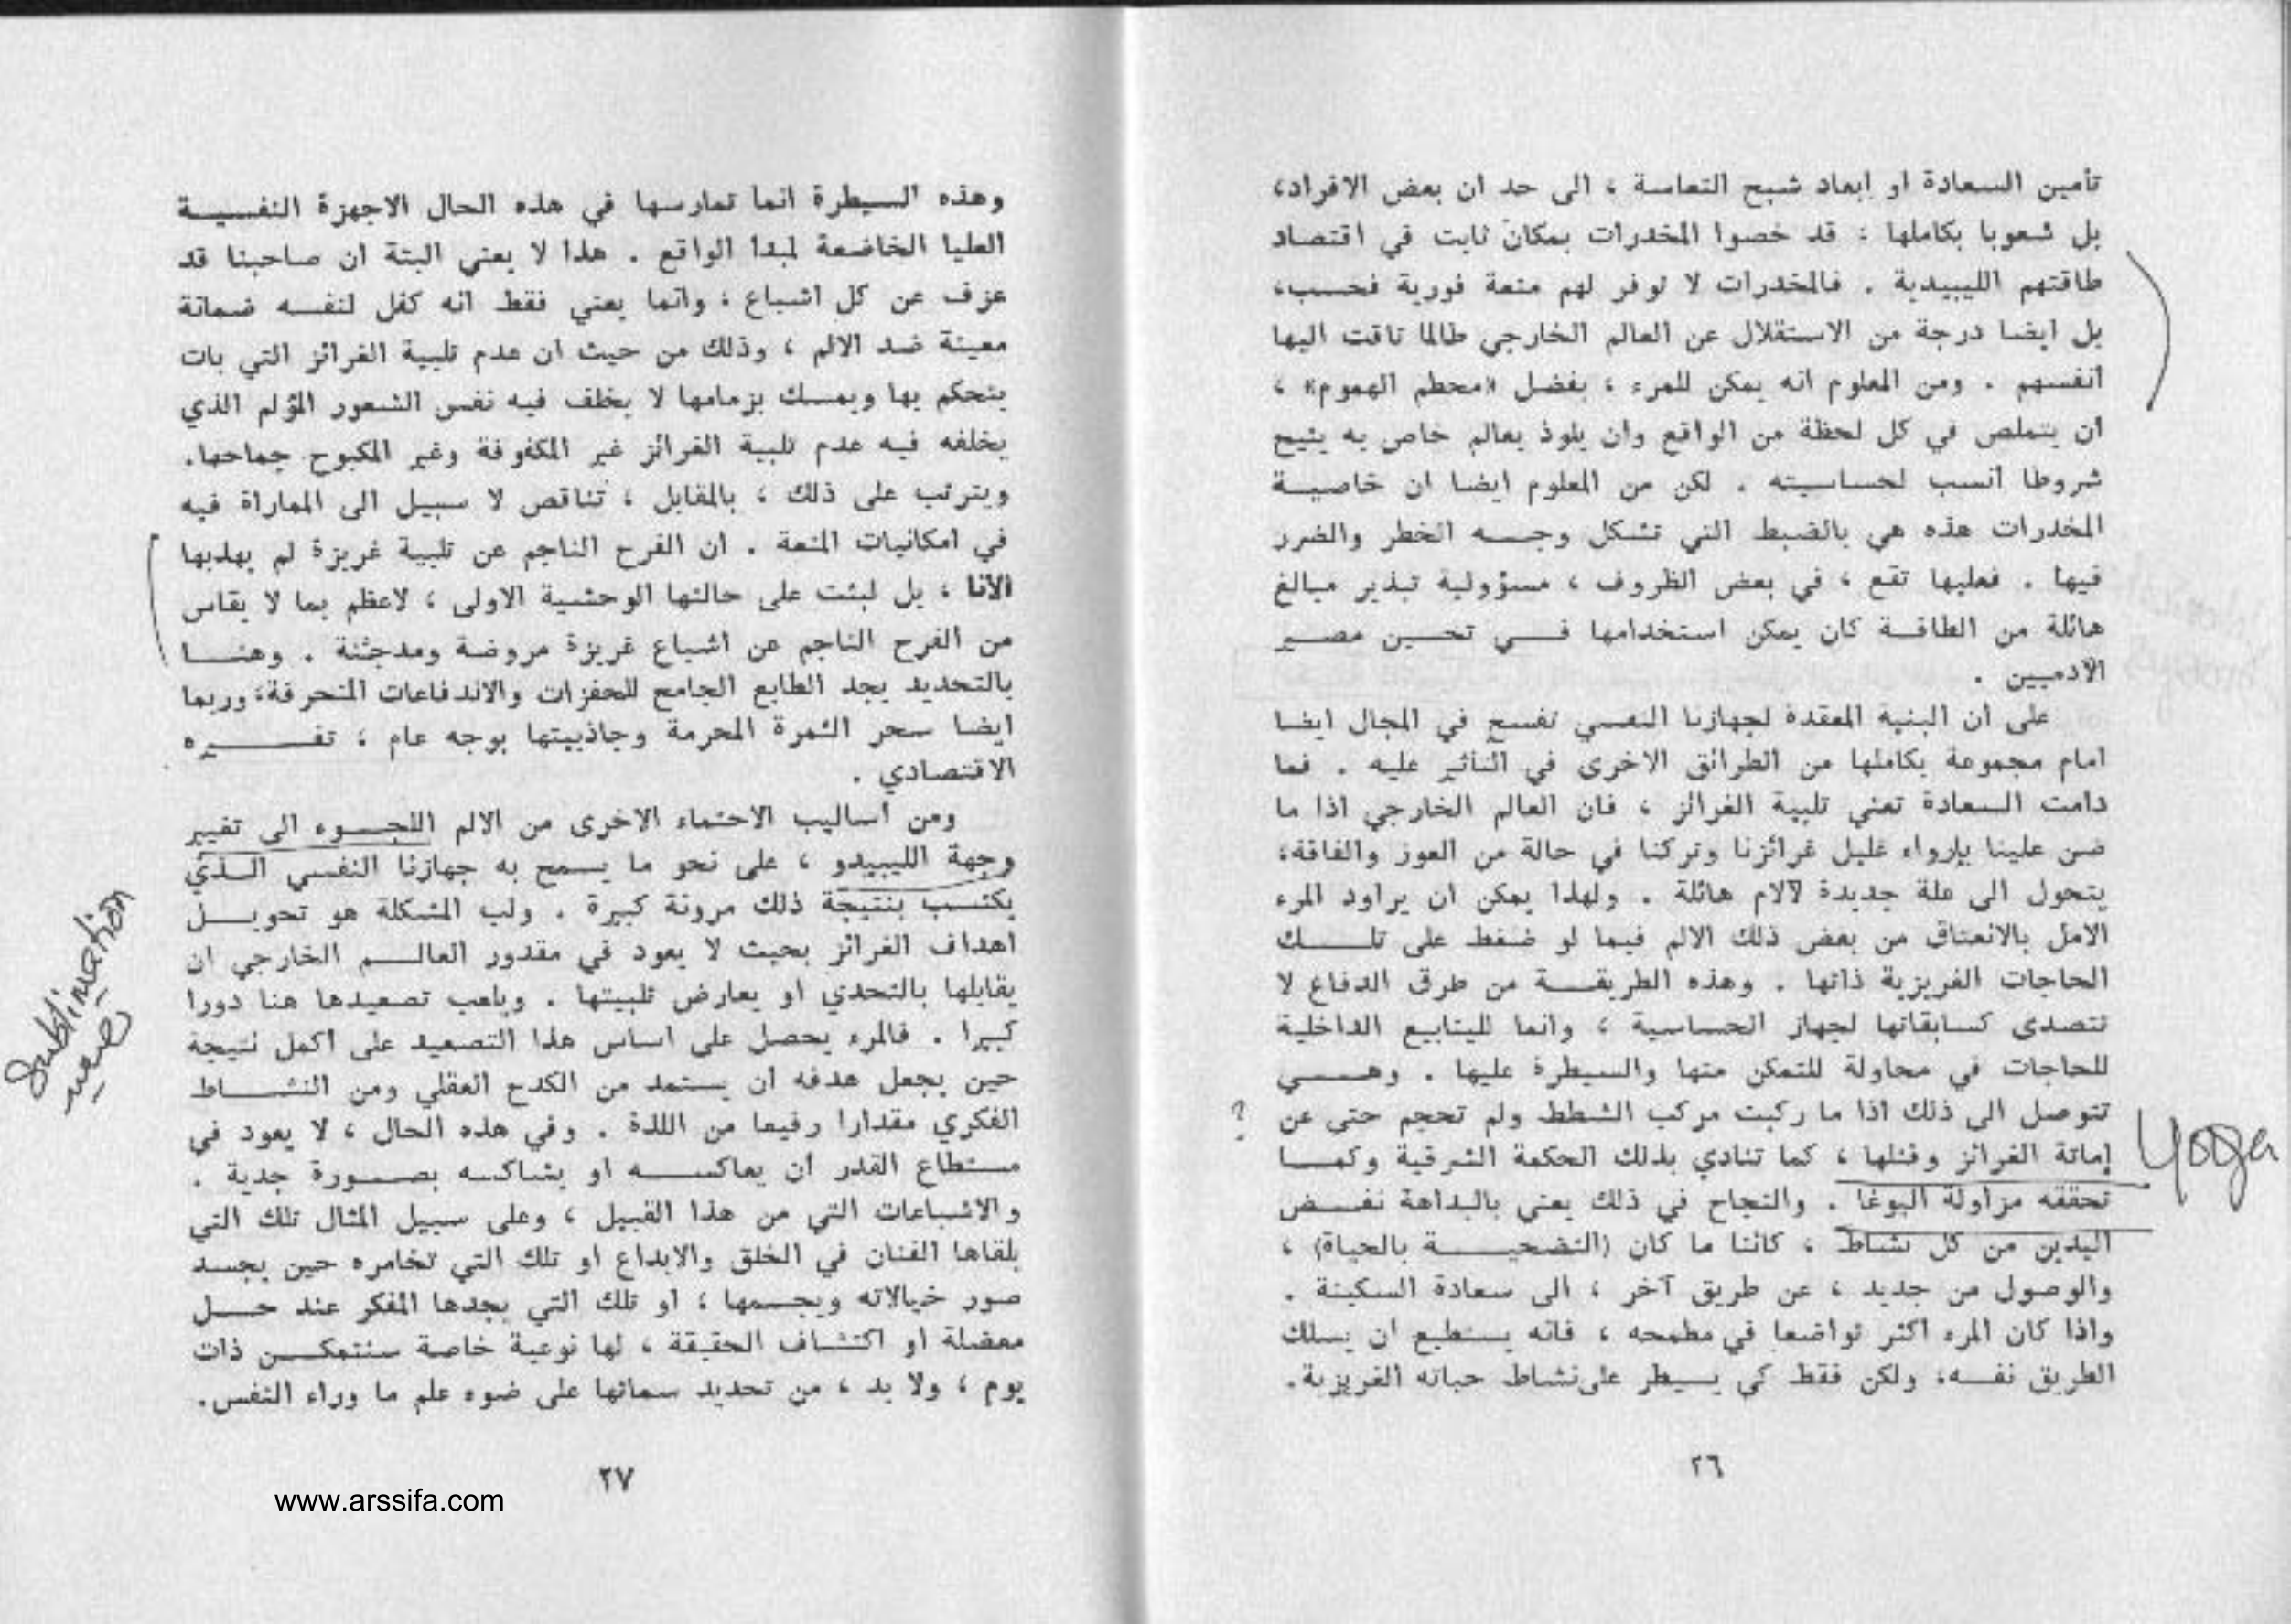 تأمين السعادة او ابعاد شبح التعاسة ، الى حد ان بعض الافراد،
بل شعوبا بكاملها ، قد خصوا المخدرات بمكان ثابت في اقتصاد
طاقتهم الليبيدية . فالمخدرات لا توفر لهم متعة فورية فحسب،
بل ايضا درجة من الاستقلال عن العالم الخارجي طالما تاقت اليها
انفسهم . ومن المعلوم انه يمكن للمرء ، بفضل «محطم الهموم» ،
ان يتملص في كل لحظة من الواقع وان يلوذ بعالم خاص به يتيح
شروطا انسب لحساسيته . لكن من المعلوم ايضا ان خاصيـة
المخدرات هذه هي بالضبط التي تشكل وجـه الخطر والضرر
فيها . فعليها تقع ، في بعض الظروف ، مسؤولية تبذير مبالغ
هائلة من الطاقـة كان يمكن استخدامها فـي تحسين مصـير
الآدميين .
على ان البنية المعقدة لجهازنا النفسي تفسح في المجال ايضا
امام مجموعة بكاملها من الطرائق الاخرى في التأثير عليه . فما
دامت السعادة تعني تلبية الغرائز ، فان العالم الخارجي اذا ما
ضن علينا بإرواء غليل غرائزنا وتركنا في حالة من العوز والفاقة،
يتحول الى علة جديدة لآلام هائلة . ولهذا يمكن ان يراود المرء
الامل بالانعتاق من بعض ذلك الالم فيما لو ضغط على تلـك
الحاجات الغريزية ذاتها . وهذه الطريقـة من طرق الدفاع لا
تتصدى كسابقاتها لجهاز الحساسية ، وانما للينابيع الداخلية
للحاجات في محاولة للتمكن منها والسيطرة عليها . وهـي
تتوصل الى ذلك اذا ما ركبت مركب الشطط ولم تحجم حتى عن
?
إماتة الغرائز وقتلها ، كما تنادي بذلك الحكمة الشرقية وكمـا
Yoga
تحققه مزاولة اليوغا . والنجاح في ذلك يعني بالبداهة نفـض
اليدين من كل نشاط ، كائنا ما كان (التضحيـة بالحياة) ،
والوصول من جديد ، عن طريق آخر ، الى سعادة السكينة .
واذا كان المرء اكثر تواضعا في مطمحه ، فانه يستطيع ان يسلك
الطريق نفسه، ولكن فقط كي يسيطر على نشاط حياته الغريزية.
٢٦
وهذه السيطرة انما تمارسها في هذه الحال الاجهزة النفسيـة
العليا الخاضعة لمبدا الواقع . هذا لا يعني البتة ان صاحبنا قد
عزف عن كل اشباع ، وانما يعني فقط انه كفل لنفسه ضمانة
معينة ضد الالم ، وذلك من حيث ان عدم تلبية الغرائز التي بات
يتحكم بها ويمسك بزمامها لا يخلف فيه نفس الشعور المؤلم الذي
يخلفه فيه عدم تلبية الغرائز غير المكفوفة وغير المكبوح جماحها.
ويترتب على ذلك ، بالمقابل ، تناقص لا سبيل الى المماراة فيه
في امكانيات المتعة . ان الفرح الناجم عن تلبية غريزة لم يهذبها
الأنا ، بل لبثت على حالتها الوحشية الاولى ، لاعظم بما لا يقاس
من الفرح الناجم عن اشباع غريزة مروضة ومدجنة . وهنـا
بالتحديد يجد الطابع الجامح للحفزات والاندفاعات المنحرفة، وربما
ايضا سحر الثمرة المحرمة وجاذبيتها بوجه عام ، تفسـيره
الاقتصادي .
ومن اساليب الاحتماء الاخرى من الالم اللجـوء الى تغيير
وجهة الليبيدو ، على نحو ما يسمح به جهازنا النفسي الـذي
يكتسب بنتيجة ذلك مرونة كبيرة . ولب المشكلة هو تحويـل
اهداف الغرائز بحيث لا يعود في مقدور العالـم الخارجي ان
يقابلها بالتحدي او يعارض تلبيتها . ويلعب تصعيدها هنا دورا
كبيرا . فالمرء يحصل على اساس هذا التصعيد على اكمل نتيجة
Sublimation
حين يجعل هدفه ان يستمد من الكدح العقلي ومن النشـاط
الفكري مقدارا رفيعا من اللذة . وفي هذه الحال ، لا يعود في
مستطاع القدر ان يعاكسـه او يشاكسه بصـورة جدية .
والاشباعات التي من هذا القبيل ، وعلى سبيل المثال تلك التي
يلقاها الفنان في الخلق والابداع او تلك التي تخامره حين يجسد
صور خيالاته ويجسمها ، او تلك التي يجدها المفكر عند حـل
معضلة او اكتشاف الحقيقة ، لها نوعية خاصة سنتمكـن ذات
يوم ، ولا بد ، من تحديد سماتها على ضوء علم ما وراء النفس.
٢٧
www.arssifa.com